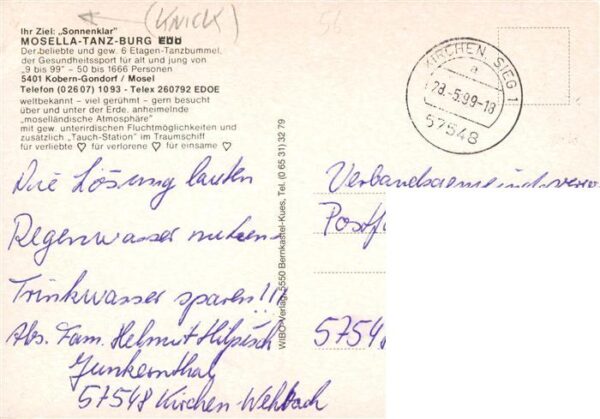 (KNICK)
56
Ihr Ziel: „Sonnenklar"
MOSELLA-TANZ-BURG EDU
Der beliebte und gew. 6 Etagen-Tanzbummel,
der Gesundheitssport für alt und jung von
„9 bis 99" – 50 bis 1666 Personen
5401 Kobern-Gondorf / Mosel
Telefon (02607) 1093 - Telex 260792 EDOE
weltbekannt - viel gerühmt - gern besucht
über und unter der Erde, anheimelnde
„moselländische Atmosphäre"
mit gew. unterirdischen Fluchtmöglichkeiten und
zusätzlich „Tauch-Station" im Traumschiff
für verliebte ♡ für verlorene ♡ für einsame ♡
KIRCHEN, SIEG 1
a
28.-5.99-18
57548
Die Lösung lauten
Regenwasser nutzen
Trinkwasser sparen!!!
Abs. Fam. Helmut Hilpisch
Junkernthal
57548 Kirchen-Wehbach
WIBO-Verlag, 5550 Bernkastel-Kues, Tel. (0 65 31) 32 79
Postf
57548